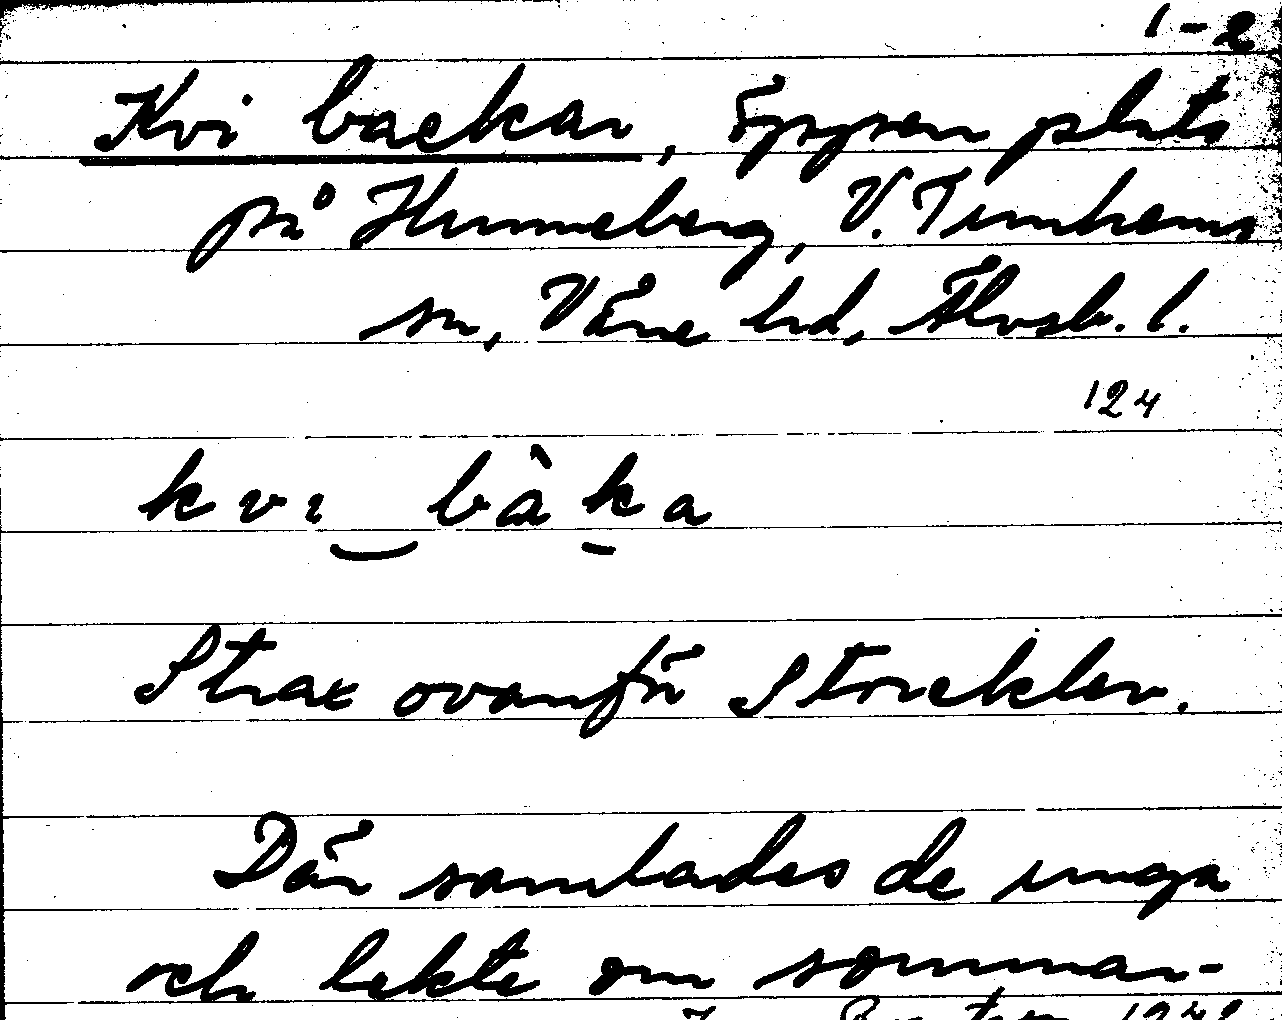 1-2
Kvi backar, öppen plats
på Hunneberg, V. Tunhems
sn, Väne hd, Älvsb. l.
124
kvɩ bàka
Strax ovanför Storeklev.
Där samlades de unga
och lekte om sommar-